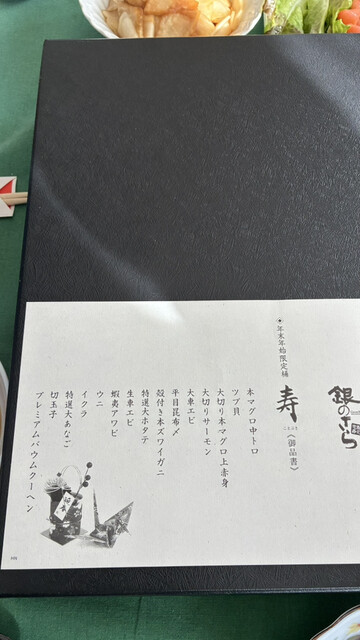 銀のさら
年末年始限定桶
寿
ことぶき
〈御品書〉
本マグロ中トロ
ツブ貝
大切り本マグロ上赤身
大切りサーモン
大車エビ
平目昆布〆
殻付き本ズワイガニ
特選大ホタテ
生車エビ
蝦夷アワビ
ウニ
イクラ
特選大あなご
切玉子
プレミアムバウムクーヘン